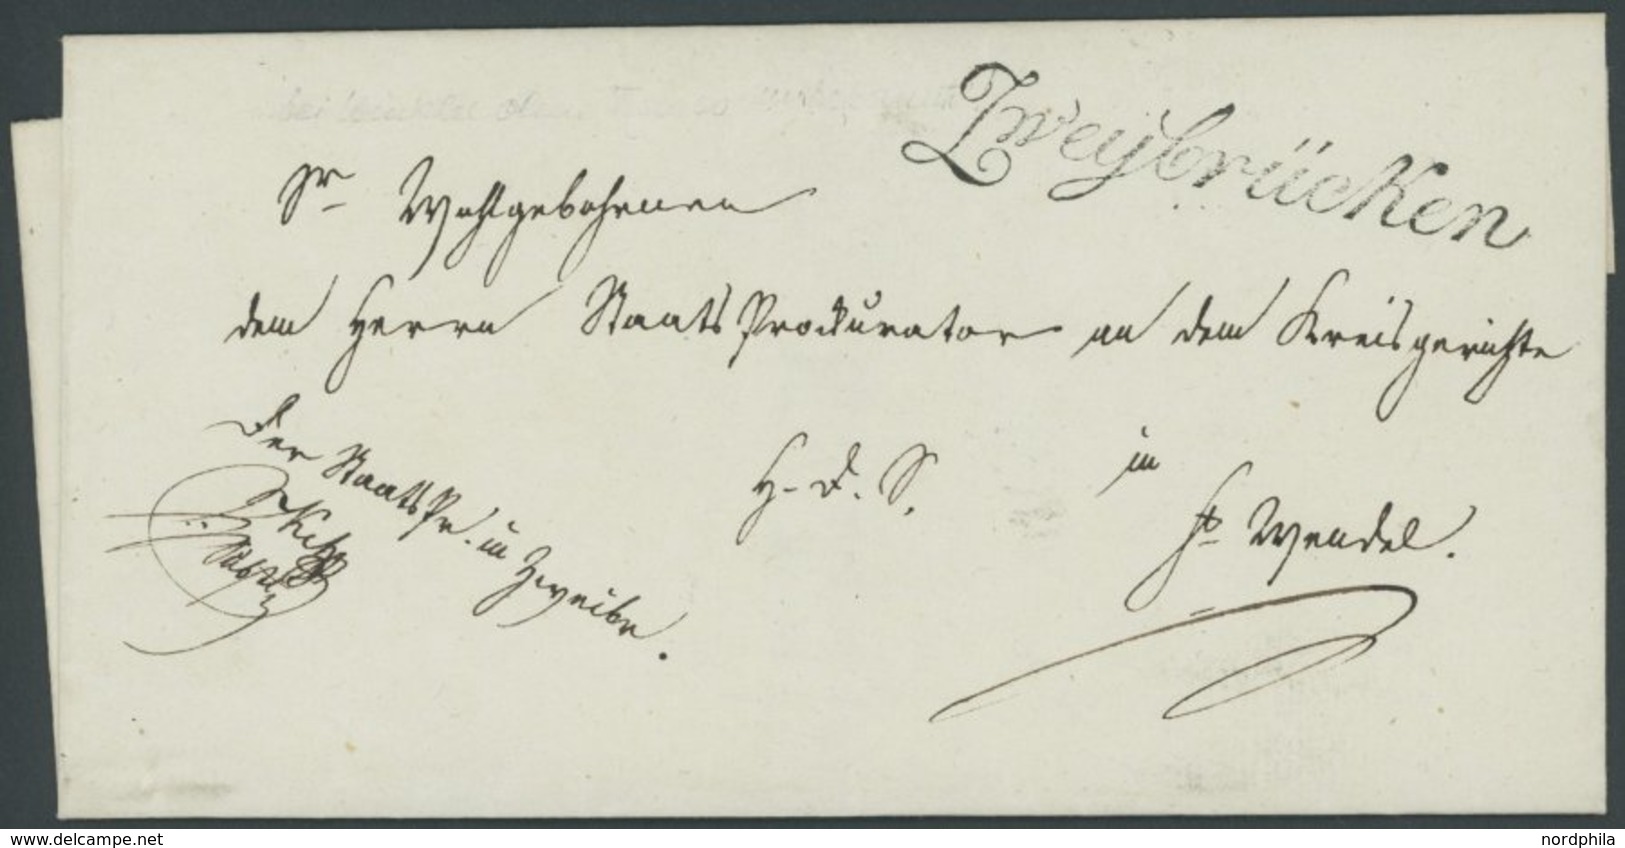 Zweybrücken
Sr Wohlgebohrnen
dem Herrn Staats Prokurator an dem Kreisgerichte
H. D. S.
in
St Wendel.
Der Staats Pr. in Zweibr.
www.delcampe.net
nordphila